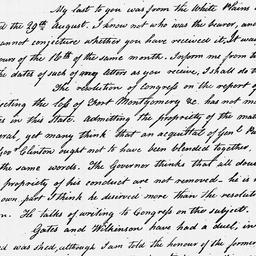 My last to you was from the White Plains
ed the 29th August. I know not who was the bearer, and
cannot conjecture whether you have received it, It was
ours of the 16th of the same month. Inform me from t
the dates of such of my letters as you receive, I shall do t
The resolution of Congress on the report of
specting the loss of Front Montgomery &c. has not m
es in this State. admitting the propriety of the mat
eral, yet many think that an acquittal of Genl. Pu
Gov Clinton ought not to have been blended together,
the same words. The Governor thinks that all dou
propriety of his conduct are not removed — he is n
own part I think he deserved more than the resolutio
on. He talks of writing to Congress on the subject.
Gates and Wilkinson have had a duel, in
d was shed, although I am told the honour of the former